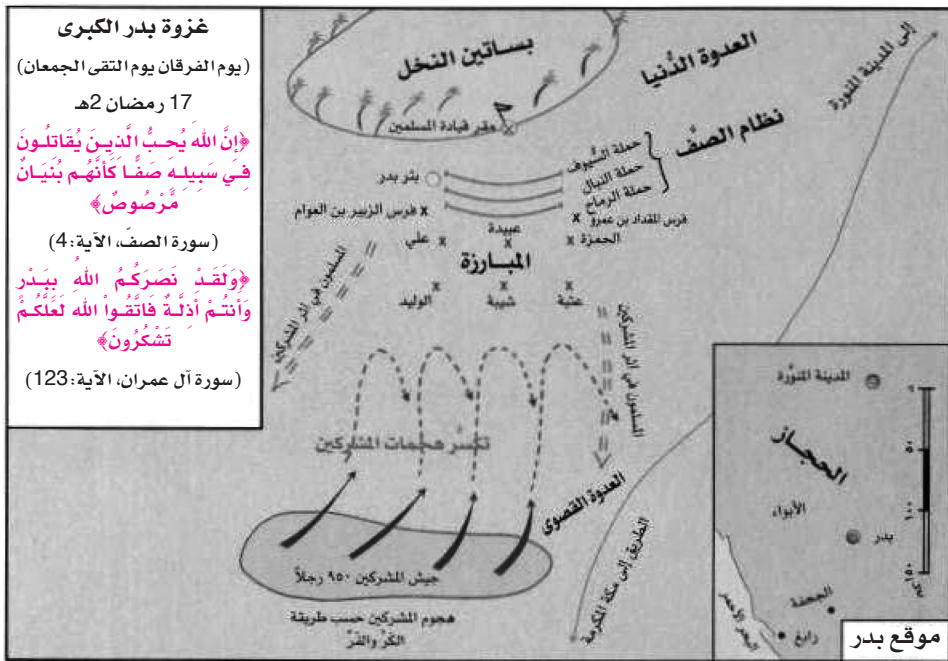 غزوة بدر الكبرى
(يوم الفرقان يوم التقى الجمعان)
17 رمضان 2هـ
﴿إنَّ اللهَ يُحـبُّ الَّذِيـنَ يُقَاتلُـونَ
فِـي سَبِيلـهِ صَفًّـا كَأَنَّهُـم بُنْيَـانٌ
مَّرْصُوصٌ﴾
(سورة الصفّ، الآية:4)
﴿وَلَقَـدْ نَصَرَكُـمُ اللهُ بِبَـدْرٍ
وَأَنتُـمْ أَذِلَّـةٌ فَاتَّقُـواْ الله لَعَلَّكُـمْ
تَشْكُرُونَ﴾
(سورة آل عمران، الآية:123)
بساتين النخل
العدوة الدُّنيا
إلى المدينة المنوّرة
مقر قيادة المسلمين
نظام الصفّ
حملة السُّيوف
حملة النبال
حملة الرماح
بئر بدر
فرس الزبير بن العوام x
x فرس المقداد بن عمرو
عبيدة
علي x
x
x الحمزة
المبـارزة
x x x
الوليد
شيبة
عتبة
المسلمون في اثر المشركين
المسلمون في اثر المشركين
تكسُّر هجمات المشركين
العدوة القصوى
جيش المشركين ٩٥٠ رجلاً
هجوم المشركين حسب طريقة
الكَرُّ والفَرُّ
الطريق إلى مكة المكرمة
المدينة المنوَّرة
الحجـاز
الأبواء
بدر
الجحفة
رابغ
البحر الأحمر
٠
٥٠
١٠٠
١٥٠
موقع بدر